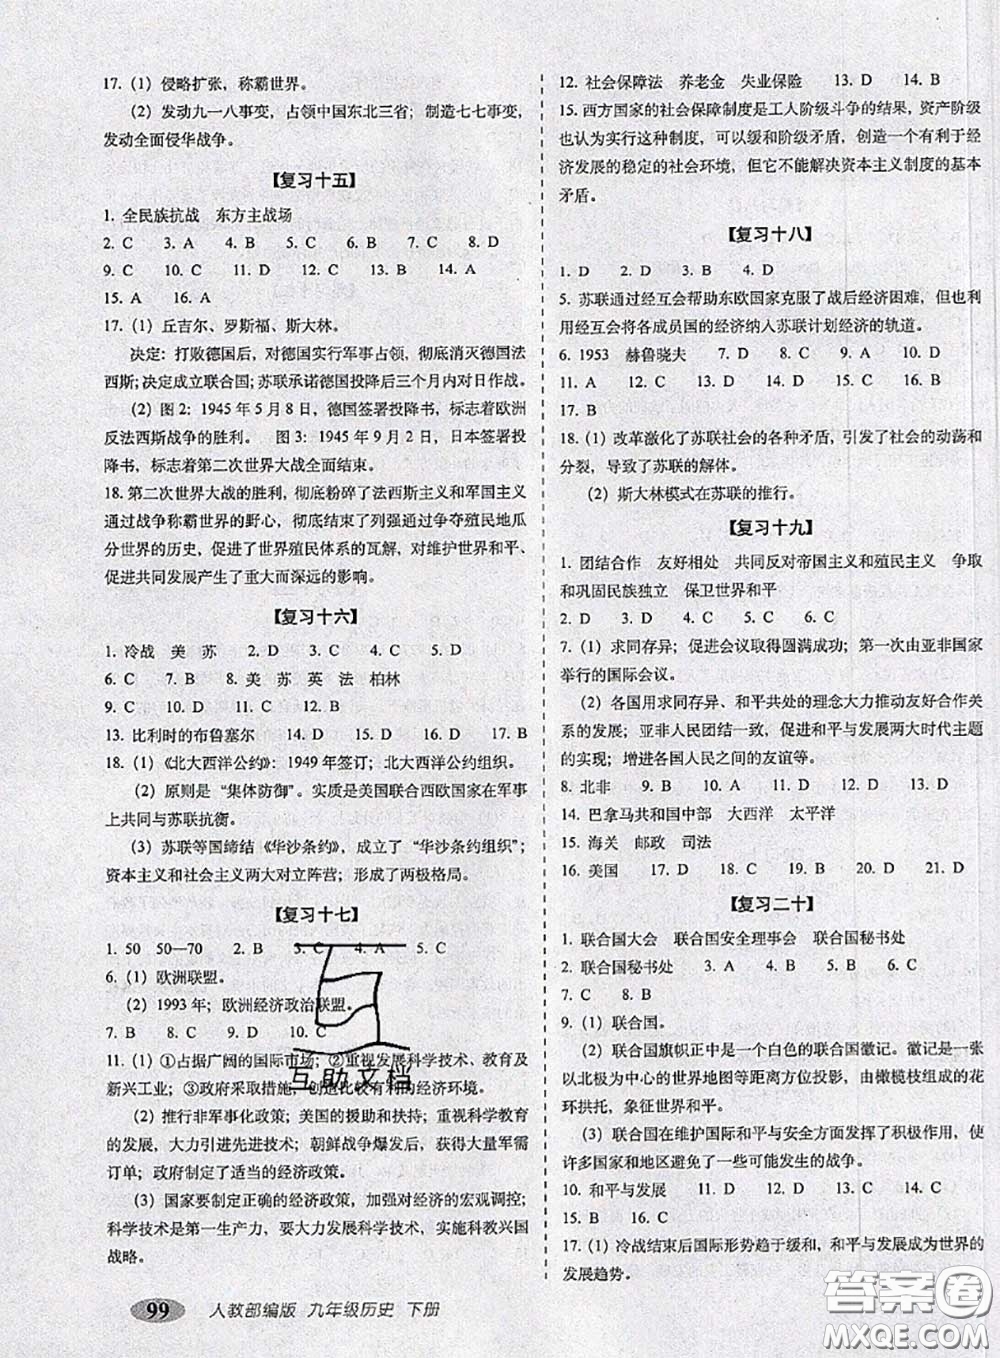 17. (1) 侵略扩张，称霸世界。
(2) 发动九一八事变，占领中国东北三省；制造七七事变，
发动全面侵华战争。
【复习十五】
1. 全民族抗战 东方主战场
2. C 3. A 4. B 5. C 6. C 7. D 8. D
9. C 10. C 11. D 12. D 13. B 14. A
15. A 16. A
17. (1) 丘吉尔、罗斯福、斯大林。
决定：打败德国后，对德国实行军事占领，彻底消灭德国法
西斯；决定成立联合国；苏联承诺德国投降后三个月内对日作战。
(2) 图 2：1945 年 5 月 8 日，德国签署投降书，标志着欧洲
反法西斯战争的胜利。 图 3：1945 年 9 月 2 日，日本签署投
降书，标志着第二次世界大战全面结束。
18. 第二次世界大战的胜利，彻底粉碎了法西斯主义和军国主义
通过战争称霸世界的野心，彻底结束了列强通过争夺殖民地瓜
分世界的历史，促进了世界殖民体系的瓦解，对维护世界和平、
促进共同发展产生了重大而深远的影响。
【复习十六】
1. 冷战 美 苏 2. D 3. C 4. C 5. D
6. C 7. B 8. 美 苏 英 法 柏林
9. C 10. C 11. C 12. B
13. 比利时的布鲁塞尔 14. D 15. D 16. D 17. B
18. (1)《北大西洋公约》：1949 年签订；北大西洋公约组织。
(2) 原则是“集体防御”。实质是美国联合西欧国家在军事
上共同与苏联抗衡。
(3) 苏联等国缔结《华沙条约》，成立了“华沙条约组织”；
资本主义和社会主义两大对立阵营；形成了两极格局。
【复习十七】
1. 50 50—70 2. B 3. C 4. A 5. C
6. (1) 欧洲联盟。
(2) 1993 年；欧洲经济政治联盟。
7. B 8. C 9. D 10. C
11. (1) ①占据广阔的国际市场；②重视发展科学技术、教育及
新兴工业；③政府采取措施，创造比较有利的经济环境。
(2) 推行非军事化政策；美国的援助和扶持；重视科学教育
的发展，大力引进先进技术；朝鲜战争爆发后，获得大量军需
订单；政府制定了适当的经济政策。
(3) 国家要制定正确的经济政策，加强对经济的宏观调控；
科学技术是第一生产力，要大力发展科学技术，实施科教兴国
战略。
互助文档
99 人教部编版 九年级历史 下册
12. 社会保障法 养老金 失业保险 13. D 14. B
15. 西方国家的社会保障制度是工人阶级斗争的结果，资产阶级
也认为实行这种制度，可以缓和阶级矛盾，创造一个有利于经
济发展的稳定的社会环境，但它不能解决资本主义制度的基本
矛盾。
【复习十八】
1. D 2. D 3. B 4. D
5. 苏联通过经互会帮助东欧国家克服了战后经济困难，但也利
用经互会将各成员国的经济纳入苏联计划经济的轨道。
6. 1953 赫鲁晓夫 7. D 8. D 9. D 10. C
11. A 12. A 13. C 14. D 15. C 16. B
17. B
18. (1) 改革激化了苏联社会的各种矛盾，引发了社会的动荡和
分裂，导致了苏联的解体。
(2) 斯大林模式在苏联的推行。
【复习十九】
1. 团结合作 友好相处 共同反对帝国主义和殖民主义 争取
和巩固民族独立 保卫世界和平
2. D 3. D 4. C 5. C 6. D
7. (1) 求同存异；促进会议取得圆满成功；第一次由亚非国家
举行的国际会议。
(2) 各国用求同存异、和平共处的理念大力推动友好合作关
系的发展；亚非人民团结一致，促进和平与发展两大时代主题
的实现；增进各国人民之间的友谊等。
8. 北非 9. B 10. C 11. D 12. A 13. C
14. 巴拿马共和国中部 大西洋 太平洋
15. 海关 邮政 司法
16. 美国 17. B 18. C 19. A 20. D 21. D
【复习二十】
1. 联合国大会 联合国安全理事会 联合国秘书处
2. 联合国秘书处 3. A 4. B 5. D 6. D
7. C 8. B
9. (1) 联合国。
(2) 联合国旗帜正中是一个白色的联合国徽记。徽记是一张
以北极为中心的世界地图等距方位投影，由橄榄枝组成的花
环拱托，象征世界和平。
(3) 联合国在维护国际和平与安全方面发挥了积极作用，使
许多国家和地区避免了一些可能发生的战争。
10. 和平与发展 11. D 12. D 13. C 14. C
15. B 16. C
17. (1) 冷战结束后国际形势趋于缓和，和平与发展成为世界的
发展趋势。
答案圈
MXQE.COM